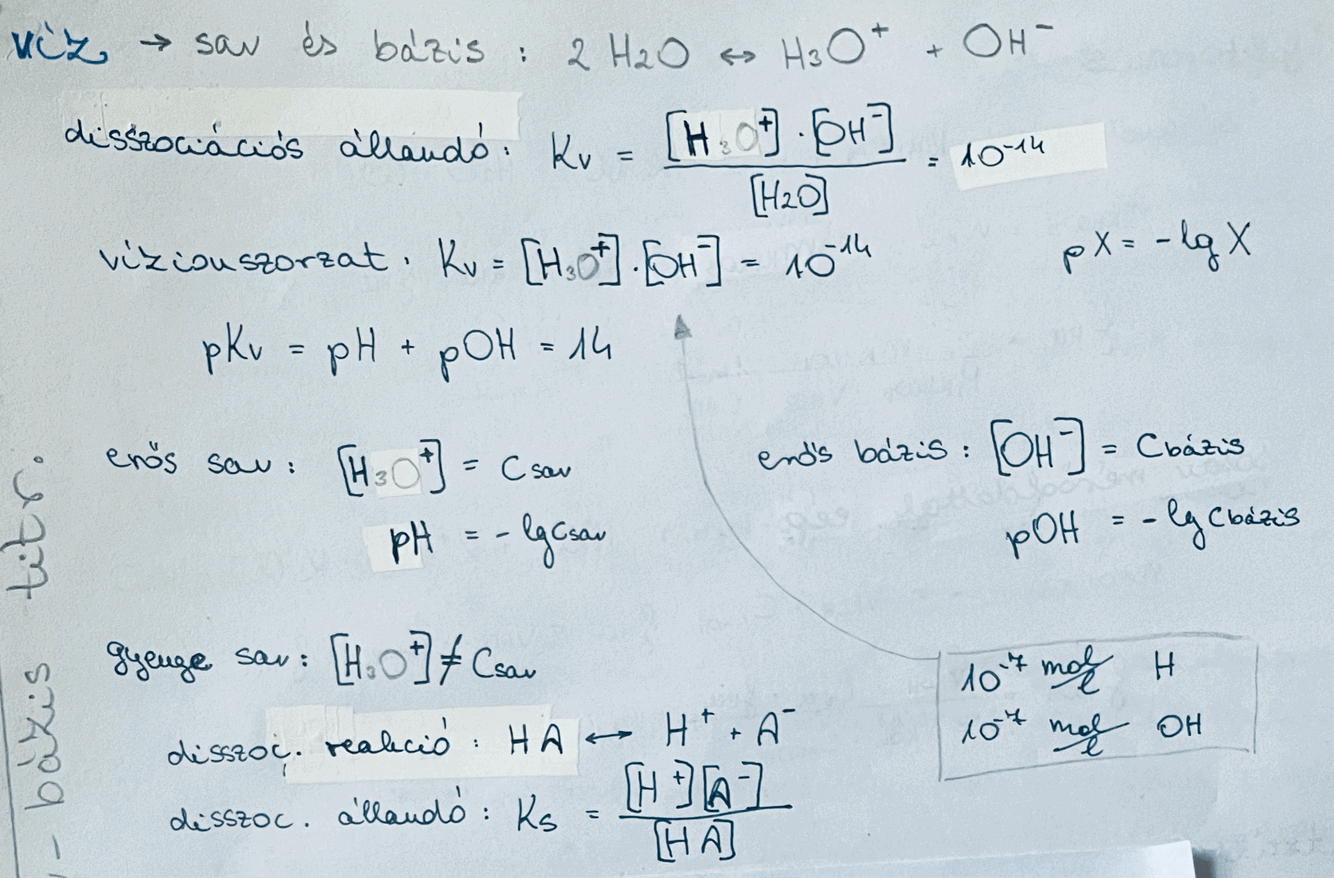 víz → sav és bázis : 2 H2O ↔ H3O⁺ + OH⁻
disszociációs állandó : Kv = [H3O⁺] · [OH⁻] / [H2O] = 10⁻¹⁴
vízionszorzat . Kv = [H3O⁺] · [OH⁻] = 10⁻¹⁴
pX = -lg X
pKv = pH + pOH = 14
erős sav : [H3O⁺] = Csav
pH = - lg Csav
erős bázis : [OH⁻] = Cbázis
pOH = - lg Cbázis
gyenge sav : [H3O⁺] ≠ Csav
disszoc. reakció : HA ↔ H⁺ + A⁻
disszoc. állandó : Ks = [H⁺][A⁻] / [HA]
10⁻⁷ mol/l H
10⁻⁷ mol/l OH
- bázis titr.